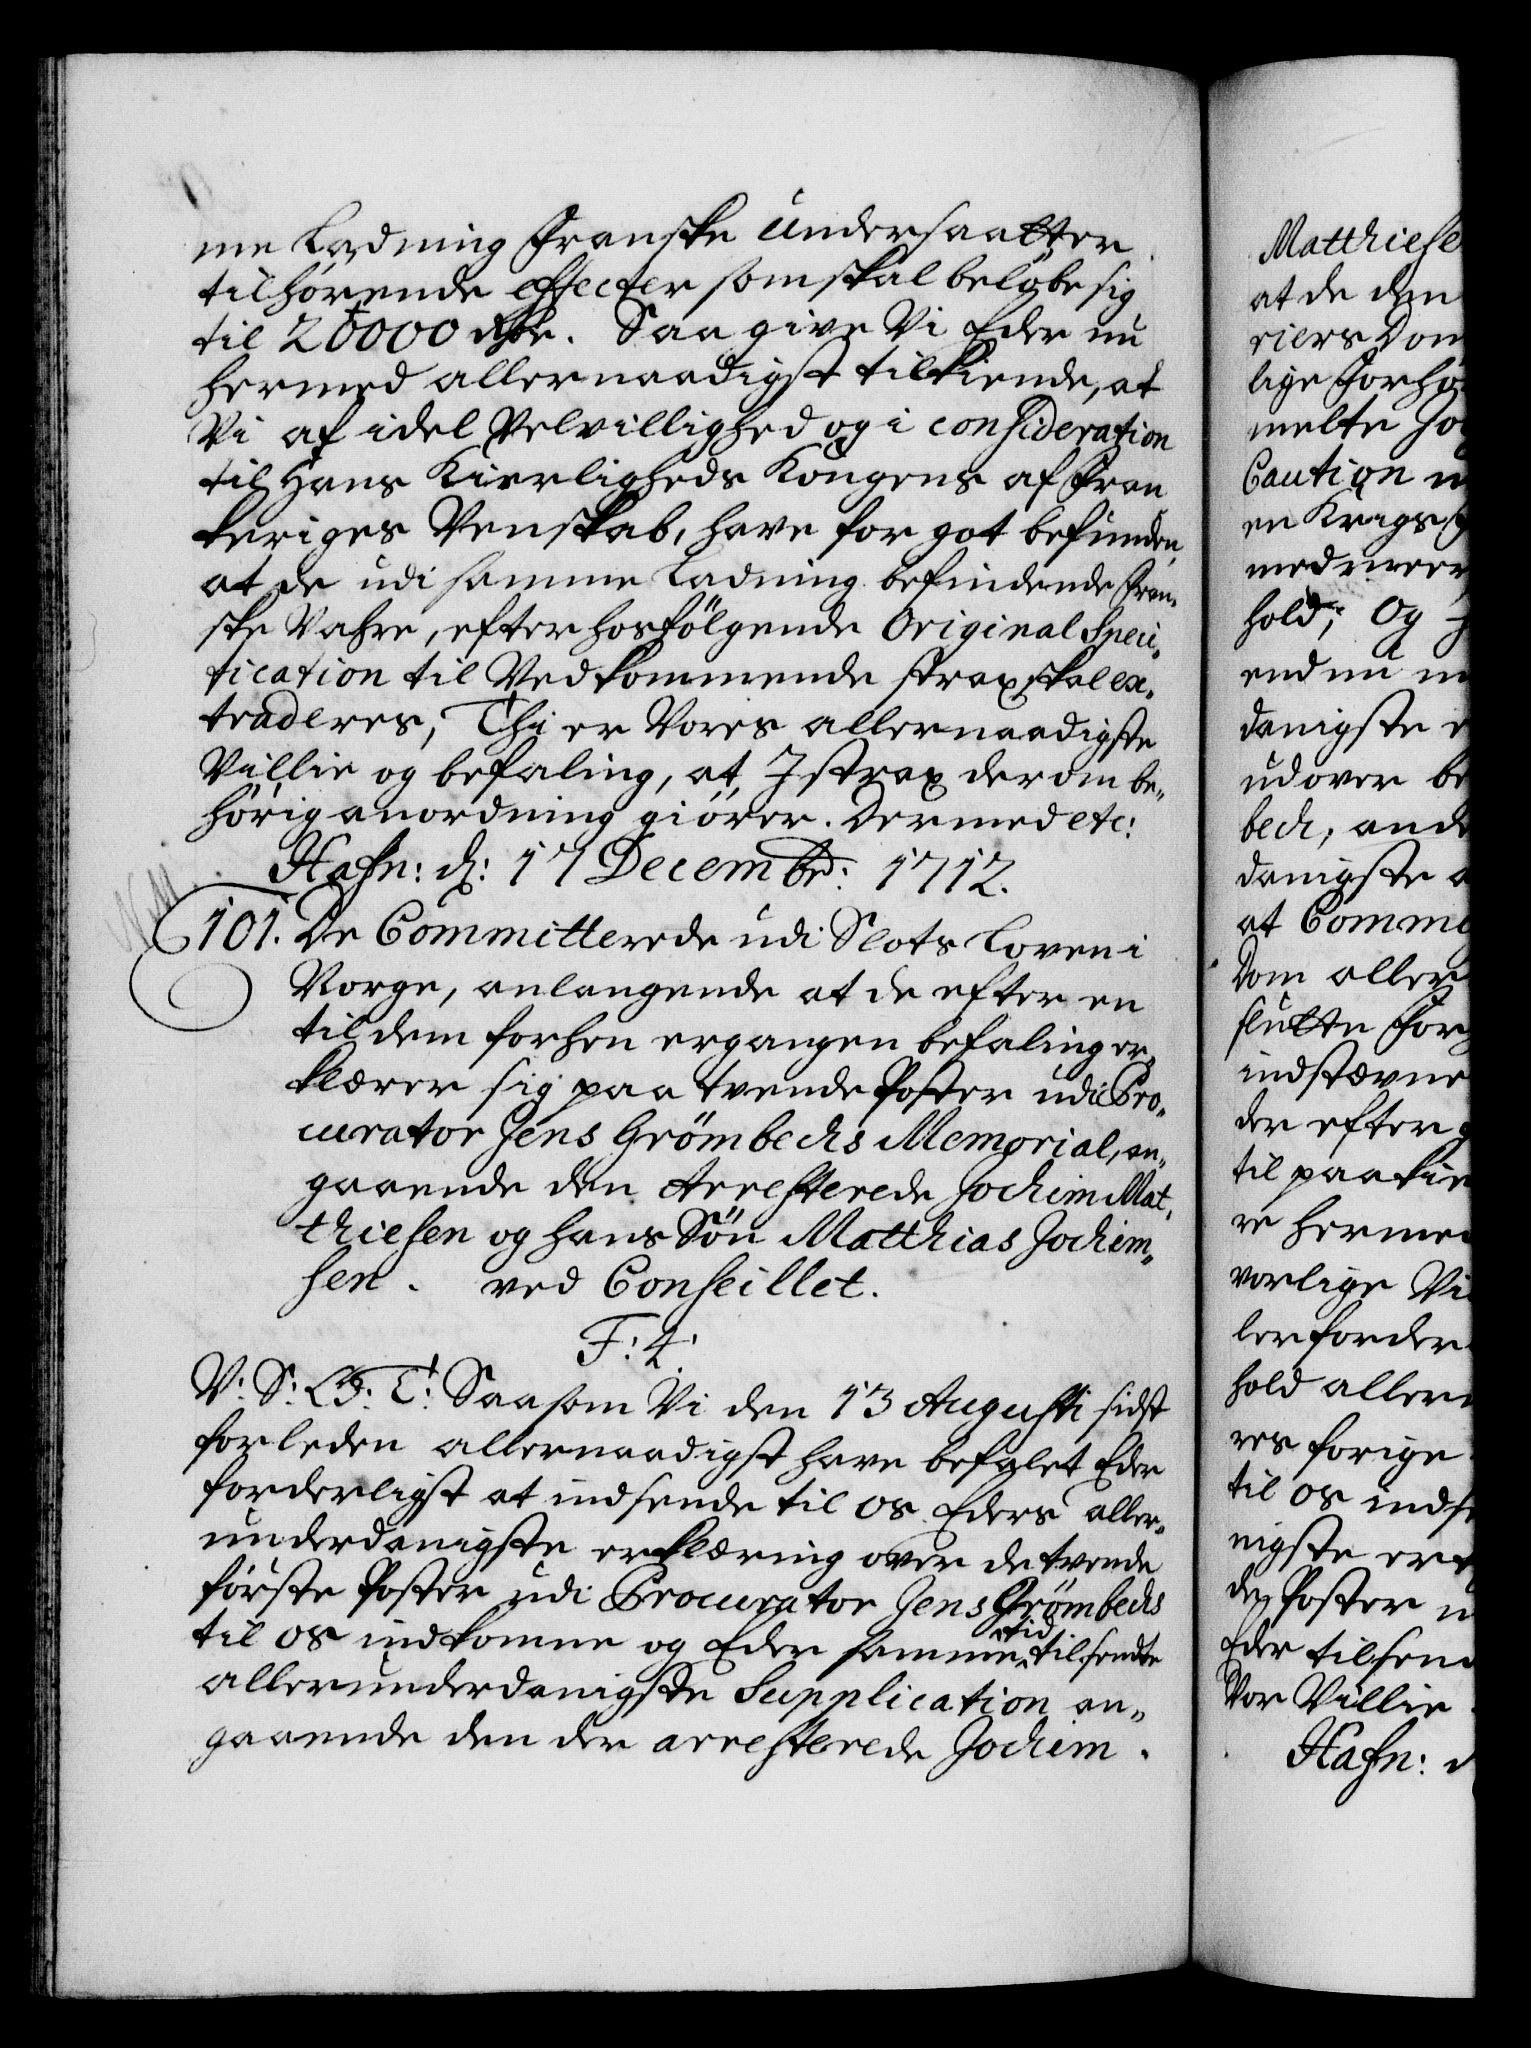 me Ladning Franske Undersaatter
tilhørende effecter som skal beløbe sig
til 20000 rdr. Saa give Vi Eder nu
hermed allernaadigst tilkiende, at
Vi af idel Velvillighed og i consideration
til Hans Kierligheds Kongens af Fran
keriges Venskab, have for got befunden
at de udi samme Ladning befindende Fran„
ske Vahre, efter hosfölgende Original Speci„
fication til Vedkommende strax skal ex„
traderes; Thi er Vores allernaadigste
Villie og befaling, at I strax derom be„
hörig anordning giörer. Dermed etc:
Hafn: d: 17 Decembr: 1712.
101. De Committerede udi Slots Loven i
Norge, anlangende at de efter en
til dem forhen ergangen befaling er„
klærer sig paa tvende Poster udi Pro„
curator Jens Grömbechs Memorial, an„
gaaende den Arresterede Jochim Mat„
thiesen og hans Sön Matthias Jochim„
sen. ved Conseillet.
F: 4:
V: S: G: T: Saasom Vi den 13 Augusti sidst
forleden allernaadigst have befalet Eder
forderligst at indsende til os Eders aller„
underdanigste erklæring over de tvende
förste Poster udi Procurator Jens Grömbechs
til os indkomne og Eder samme tid tilsendte
allerunderdanigste Supplication an„
gaaende den der arresterede Jochim
Matthiese
at de den
riers Dom
lige Forhö
melte Jo
Caution
en Krigs
med meer
hold; Og
endnu
danigste
udover be
bech, and
danigste a
at Comme
Dom aller
slutte For
indstævne
der efter
til paakie
re herme
vorlige Vi
ler forder
hold aller
res forige
til os indse
nigste er
de Poster
Eder tilsen
Vor Villie
Hafn: d